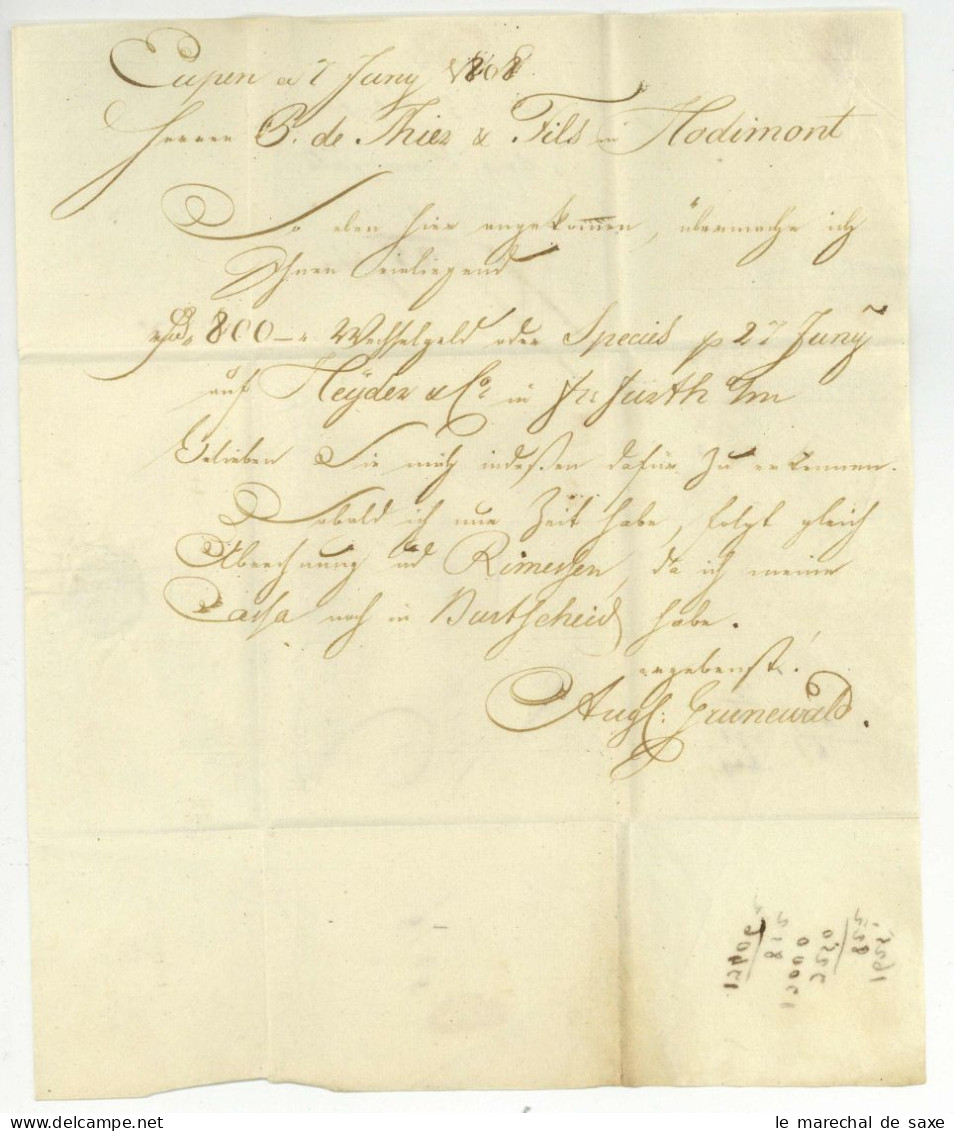 Eupen a 7 Juny 1808
Herren P. de Thier & Fils in Hodimont
So eben hier angekom̅en, übermache ich
Ihnen einliegend
800 — Wechselgeld oder Species p 27 Juny
auf Heÿder & Co. in Frfurth a/m
belieben Sie mich indeßen dafür zu erkennen.
Sobald ich nur Zeit habe, folgt gleich
Abrechnung und Rimessen, da ich meine
Cassa noch in Burtscheid habe.
ergebenst.
Augt: Grunewald.
le marechal de saxe